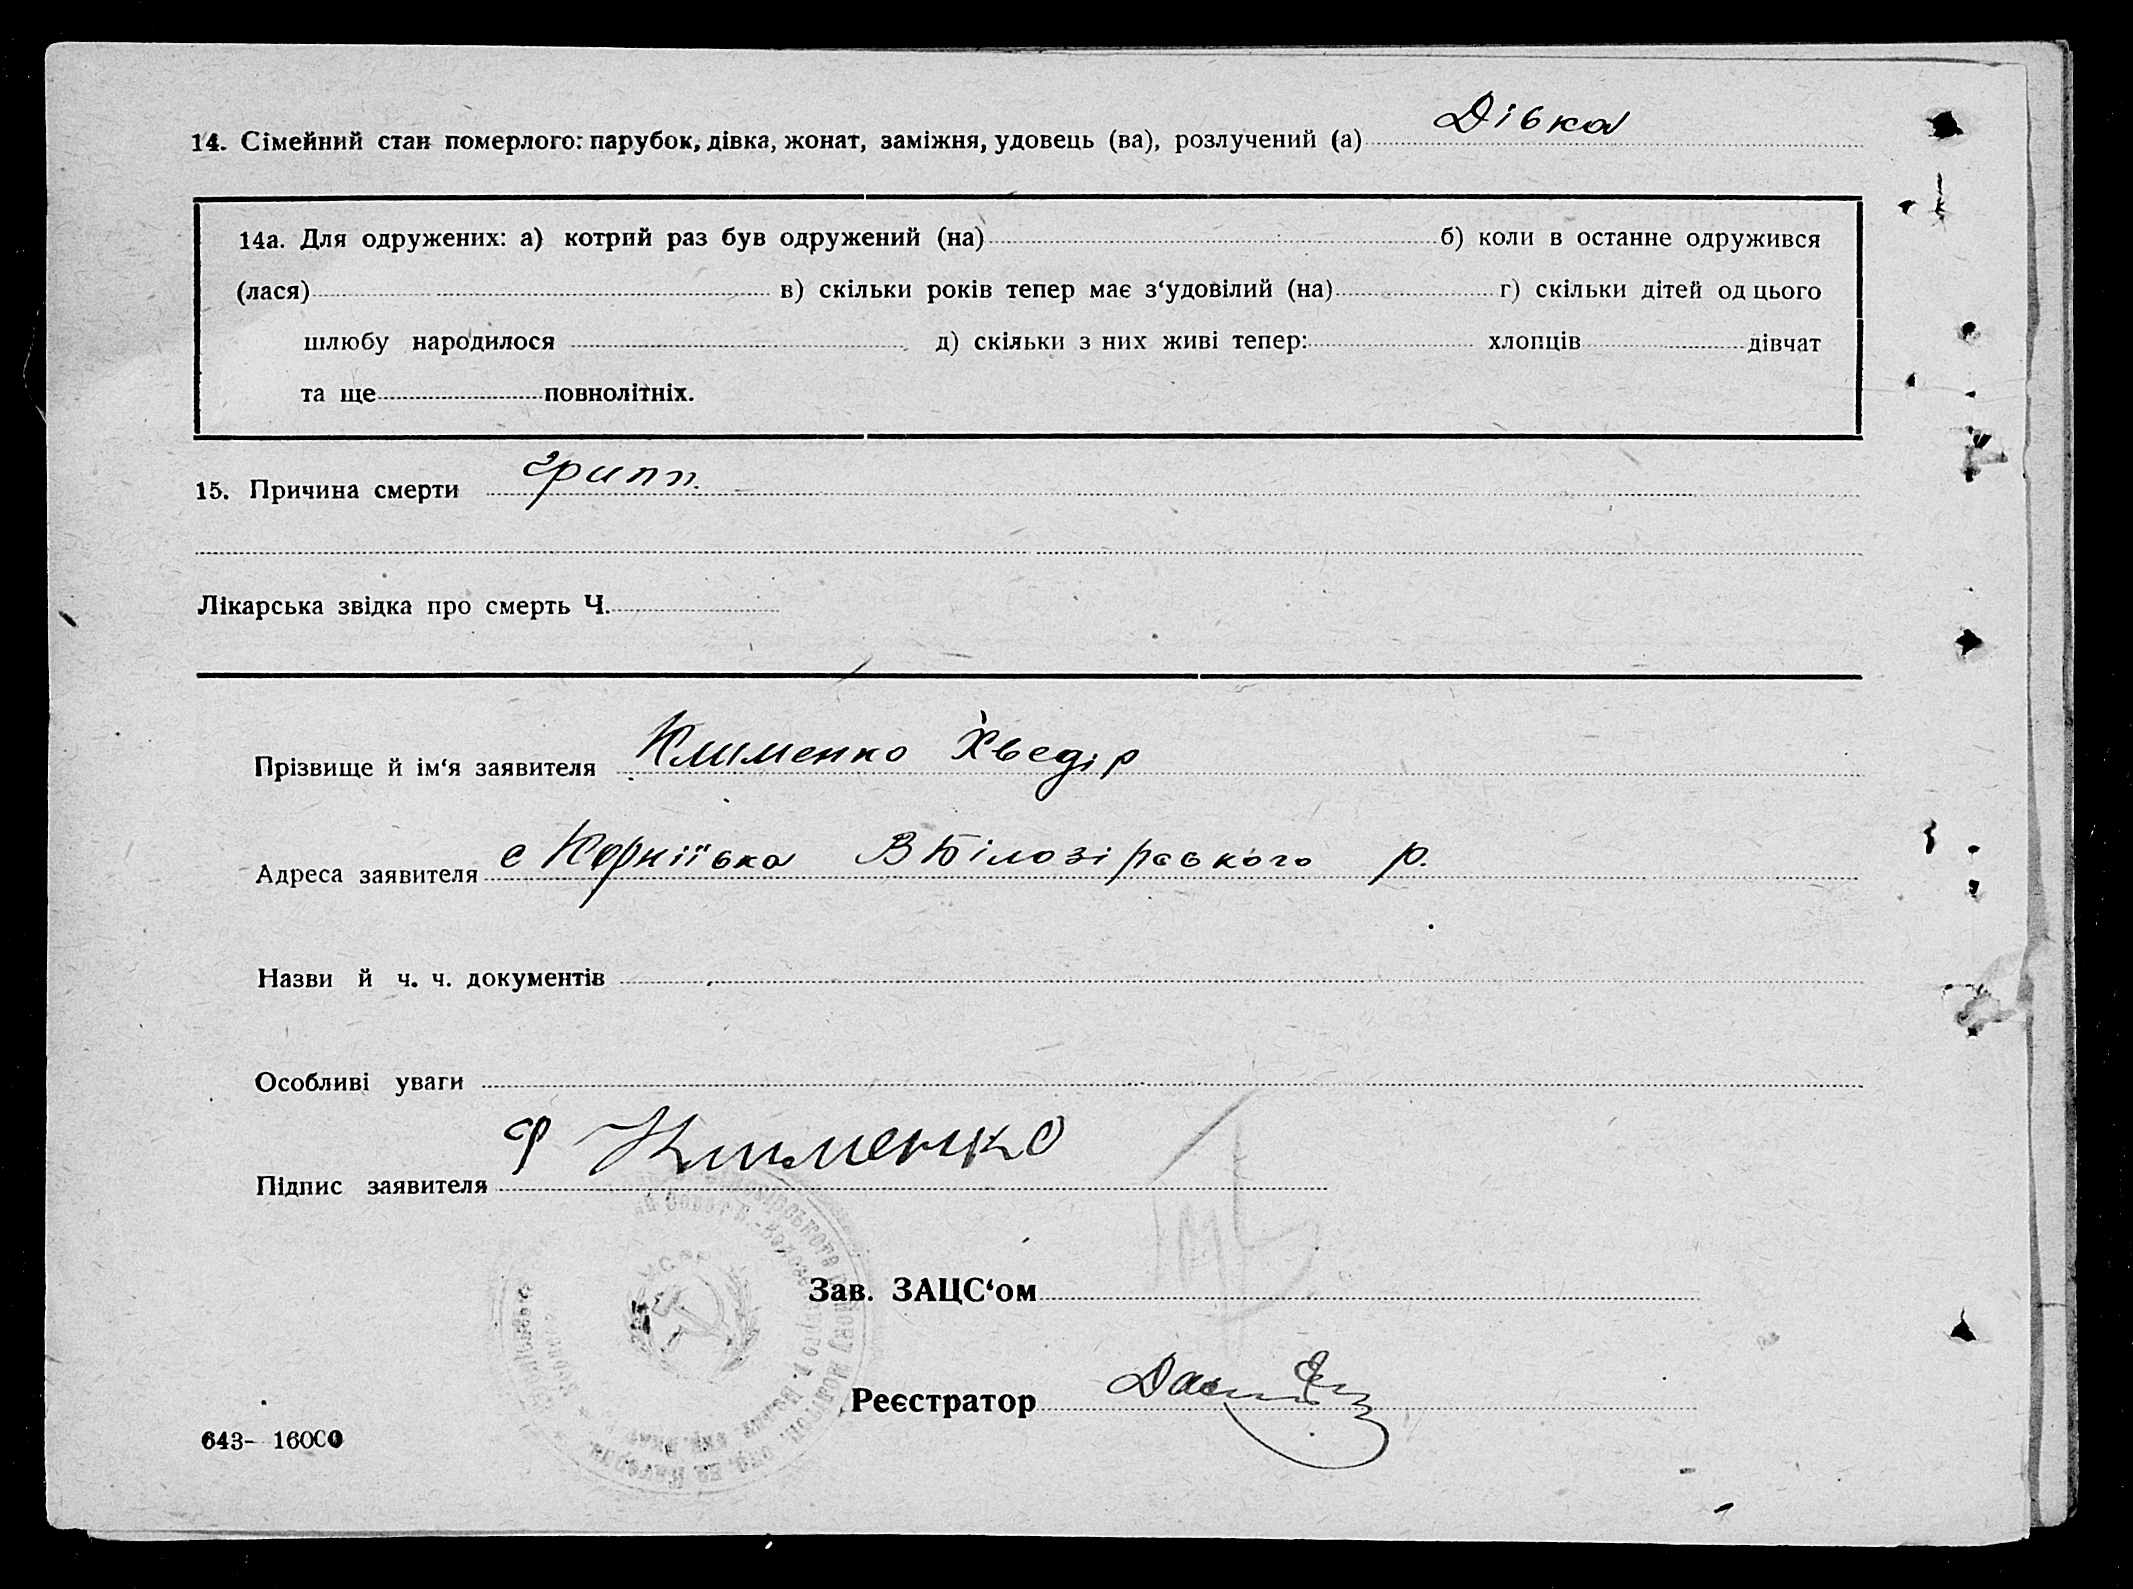 14. Сімейний стан померлого: парубок, дівка, жонат, заміжня, удовець (ва), розлучений (а) Дівка
14а. Для одружених: а) котрий раз був одружений (на) б) коли в останне одружився
(лася) в) скільки років тепер має з‘удовілий (на) г) скільки дітей од цього
шлюбу народилося д) скільки з них живі тепер: хлопців дівчат
та ще повнолітніх.
15. Причина смерти грипп.
Лікарська звідка про смерть Ч.
Прізвище й ім‘я заявителя Клименко Хведір
Адреса заявителя с Корніївка ВБілозірського р.
Назви й ч. ч. документів
Особливі уваги
Підпис заявителя Ф Клименко
Зав. ЗАЦС‘ом
Реєстратор
643- 16000